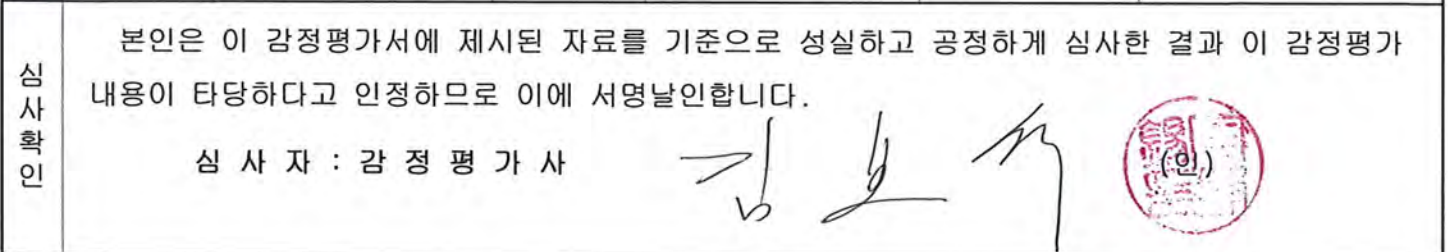 심사확인
본인은 이 감정평가서에 제시된 자료를 기준으로 성실하고 공정하게 심사한 결과 이 감정평가
내용이 타당하다고 인정하므로 이에 서명날인합니다.
심 사 자 : 감 정 평 가 사 (인)